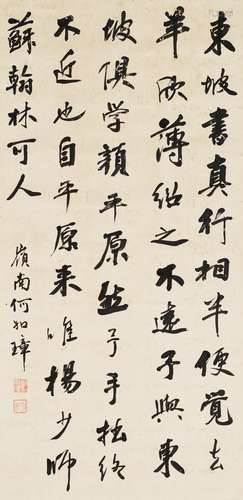 東坡書真行相半便覺去
羊欣薄紹之不遠予與東
坡俱学顔平原然予手拙終
不近也自平原来唯楊少師
蘇翰林可人
嶺南何如璋